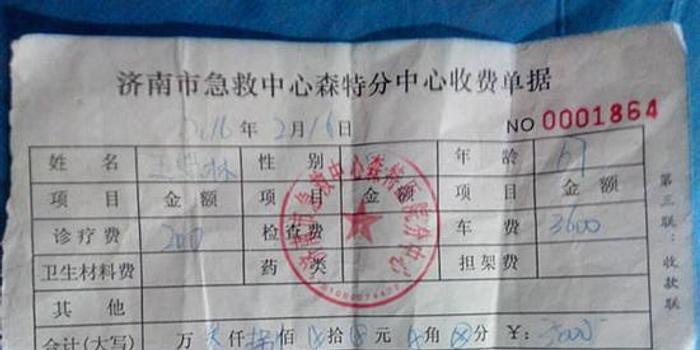 济南市急救中心森特分中心收费单据
2016年2月16日 NO 0001864
姓名 林 性别 年龄 67
项目 金额 项目 金额 项目 金额
诊疗费 200 检查费 车费 3600
卫生材料费 药类 担架费
其他
合计(大写) 万 仟 佰 拾 元 角 分 ¥:
第三联:收款联
济南市急救中心森特医院分中心